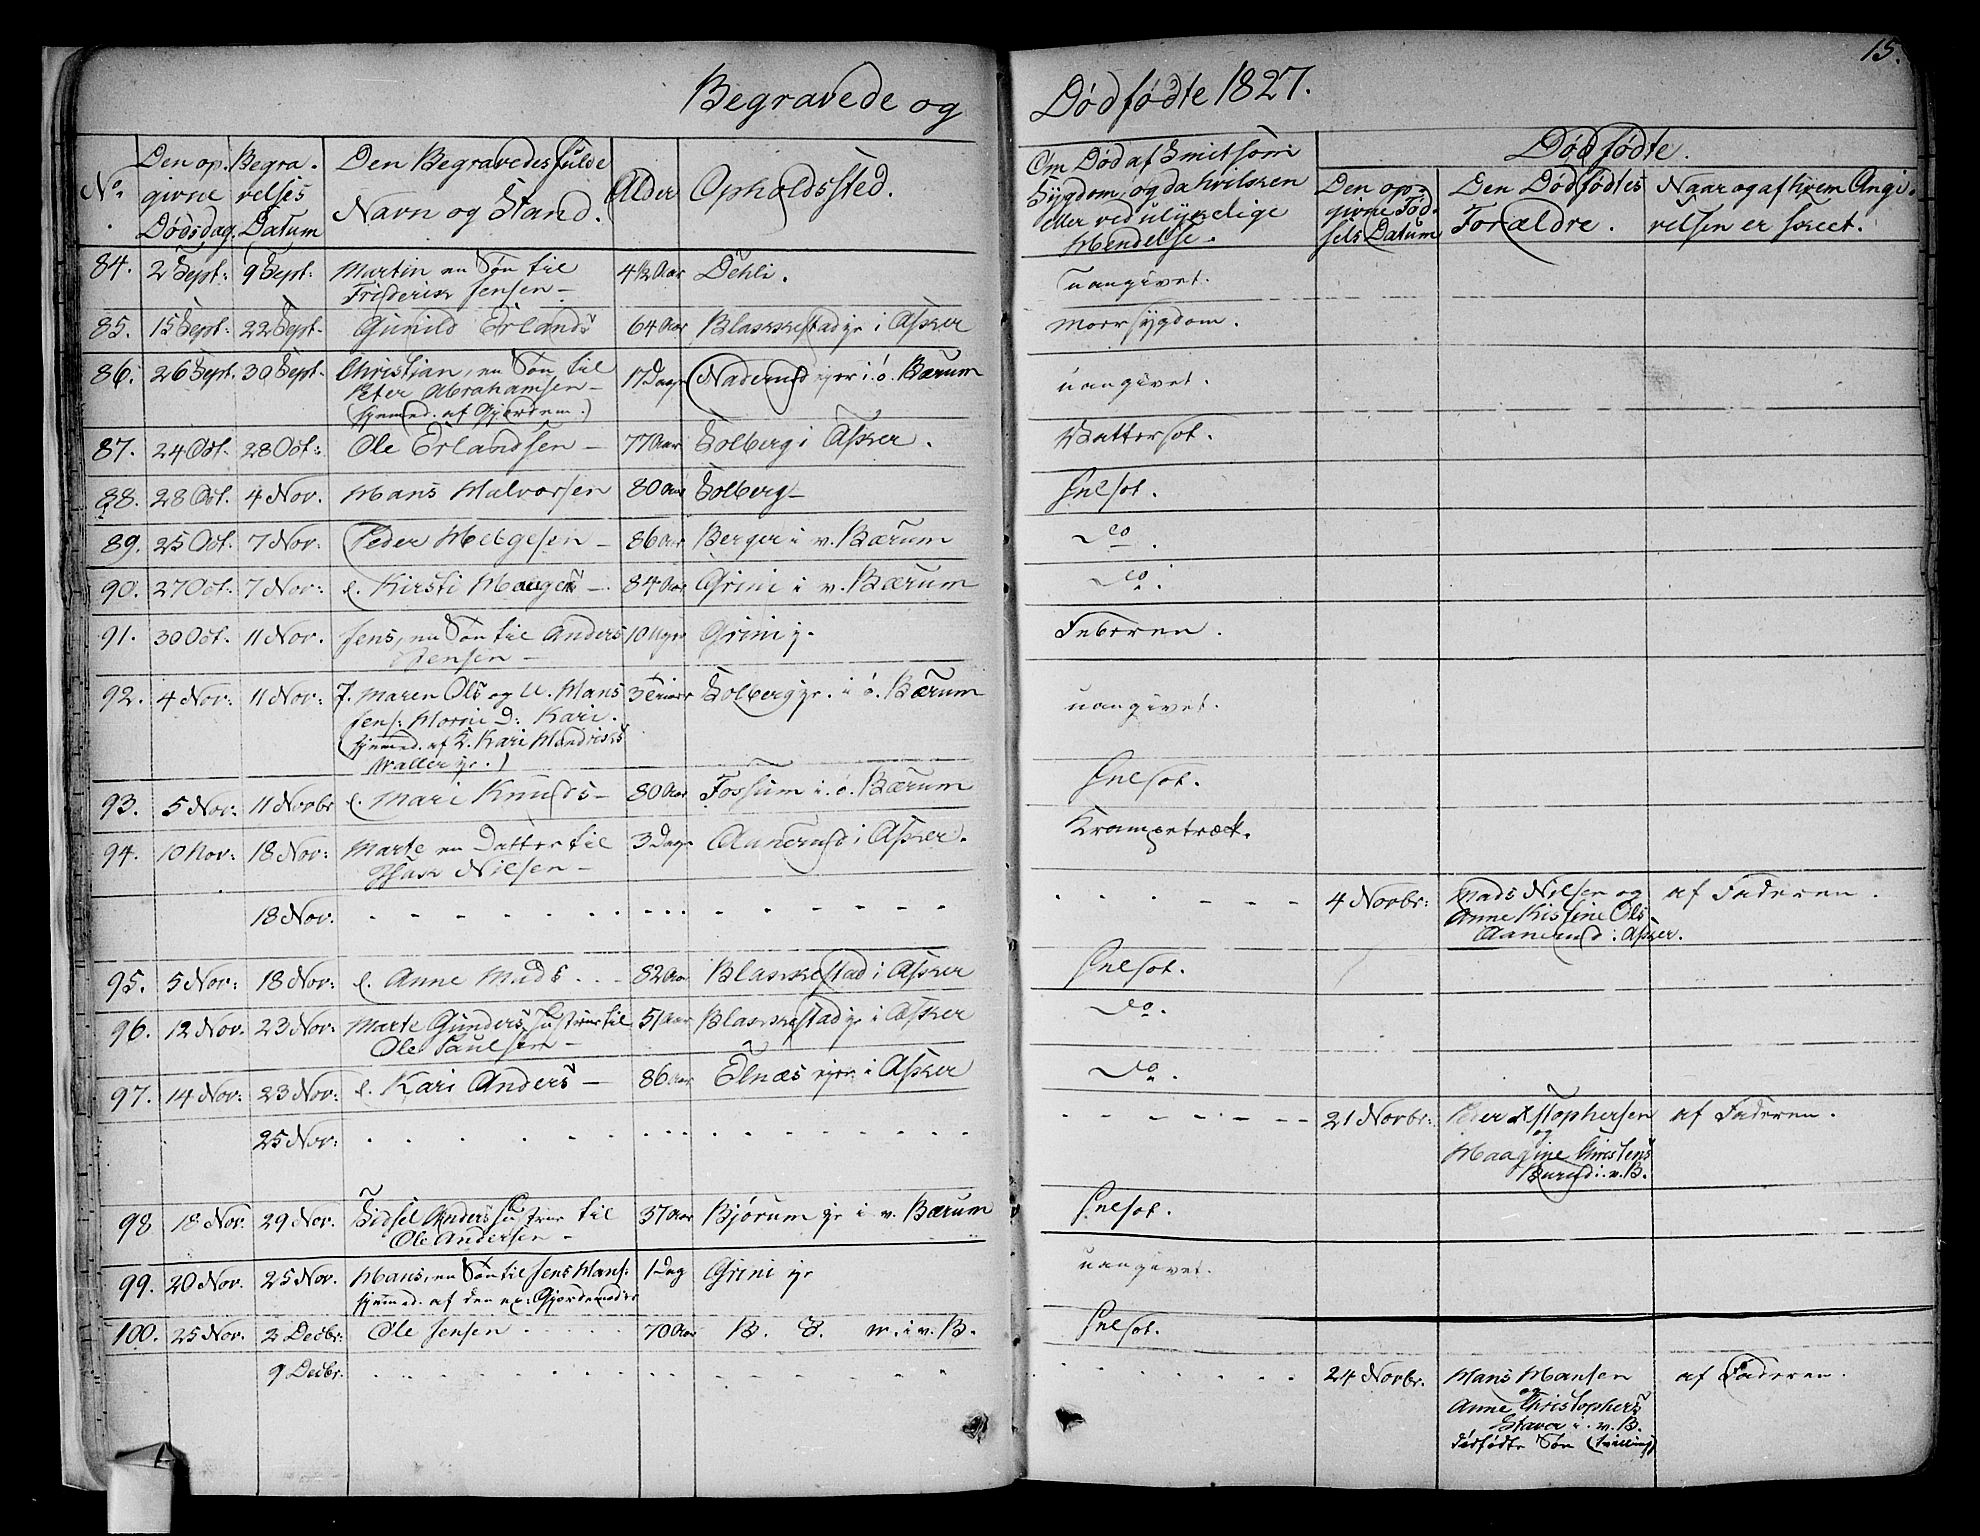 15.
Begravede og Dødfødte 1827.
No. Den opgivne Dødsdag. Begravelses Datum Den Begravedes fulde Navn og Stand. Alder Opholdssted. Om Død af Smitsom Sygdom, og da hvilken eller ved ulykkelige Hændelse. Dødfødte.
Den opgivne Fødsels Datum Den Dødfødtes Forældre. Naar og af hvem Angivelsen er skeet.
84. 2 Sept: 9 Sept: Martin en Søn til 4½ Aar Dehli. uangivet.
Friderick Jensen –
85. 15 Sept: 22 Sept. Gunild Erlands 64 Aar Blakkestad ye i Asker Moersygdom.
86. 26 Sept. 30 Sept. Christian, en Søn til 17 Dage Naderud eier i ö. Bærum uangivet.
Peter Abrahamsen –
(hjemed. af Gjordem.)
87. 24 Oct. 28 Oct: Ole Erlandsen – 77 Aar Solberg i Asker. Vattersot.
88. 28 Oct. 4 Nov. Hans Halvorsen 80 Aar Solberg – Inlsot.
89. 25 Oct. 7 Nov: Peder Helgesen – 86 Aar Berger i v. Bærum Do.
90. 27 Oct. 7 Nov: e. Kirsti Haagens –. 84 Aar Grini i v. Bærum Do.
91. 30 Oct. 11 Nov. Jens, en Søn til Anders 10 Uger Grini y. Feberen.
Jensen –
92. 4 Nov. 11 Nov: J. Maren Ols og U. Hans Solberg ye. i ö. Bærum uangivet.
Jens: Horni D: Kari.
(hjemed. af K. Kari Hendricks
Waller ye.)
93. 5 Nov: 11 Novbr e. Mari Knuds – 80 Aar Fossum i. ö. Bærum Inlsot.
94. 10 Nov: 18 Nov: Marte en Datter til 3 Dage Aanerud i Asker. Krampetræk.
Isak Nilsen –
18 Nov: 4 Novbr: Mads Nilsen og af Faderen.
Anne Kistine Ols
Aanerud i Asker.
95. 5 Nov: 18 Nov: e. Anne Mads . . . 82 Aar Blakkestad i Asker Inlsot.
96. 12 Nov. 23 Nov: Marte Gunders, Hustrue til 51 Aar Blakkestad ye i Asker Do.
Ole Paulsen –
97. 14 Nov: 23 Nov: e. Kari Anders – 86 Aar Elnæs eier i Asker Do.
25 Nov: 21 Novbr: Peder Xstophersen af Faderen.
og
Haagine Christens
Burud i. v. B.
98. 18 Nov. 29 Nov. Sidsel Anders Hustrue til 37 Aar Bjørum ye i v. Bærum Inlsot.
Ole Andersen –
99. 20 Nov. 25 Nov. Hans, en Søn til Jens Hans: 1 Dag Grini ye uangivet.
hjemmed. af den ex: Gjordemoder
100. 25 Nov. 2 Decbr: Ole Jensen . . . . 70 Aar B. E. w. i v. B. Inlsot.
9 Decbr. 24 Novbr. Hans Hansen af Faderen.
og
Anne Christophers
Staver i. v. B.
dødfødte Søn (tvilling)